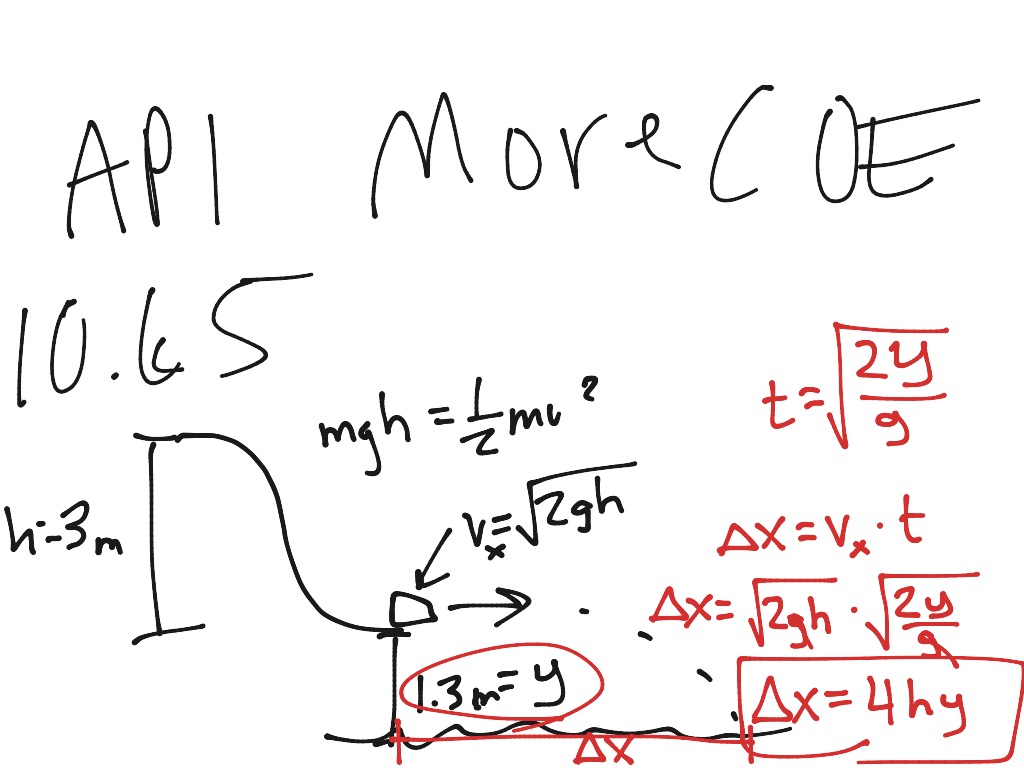 AP1 More COE
10.65
mgh = 1/2 mv²
t = √(2y/g)
h = 3m
vₓ = √(2gh)
Δx = vₓ · t
Δx = √(2gh) · √(2y/g)
1.3m = y
Δx = 4hy
Δx